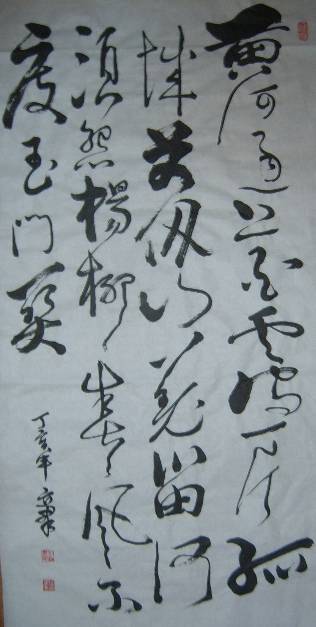 黄河遠上白雲間一片孤
城萬仞山羌笛何
須怨楊柳春風不
度玉門關
丁亥年